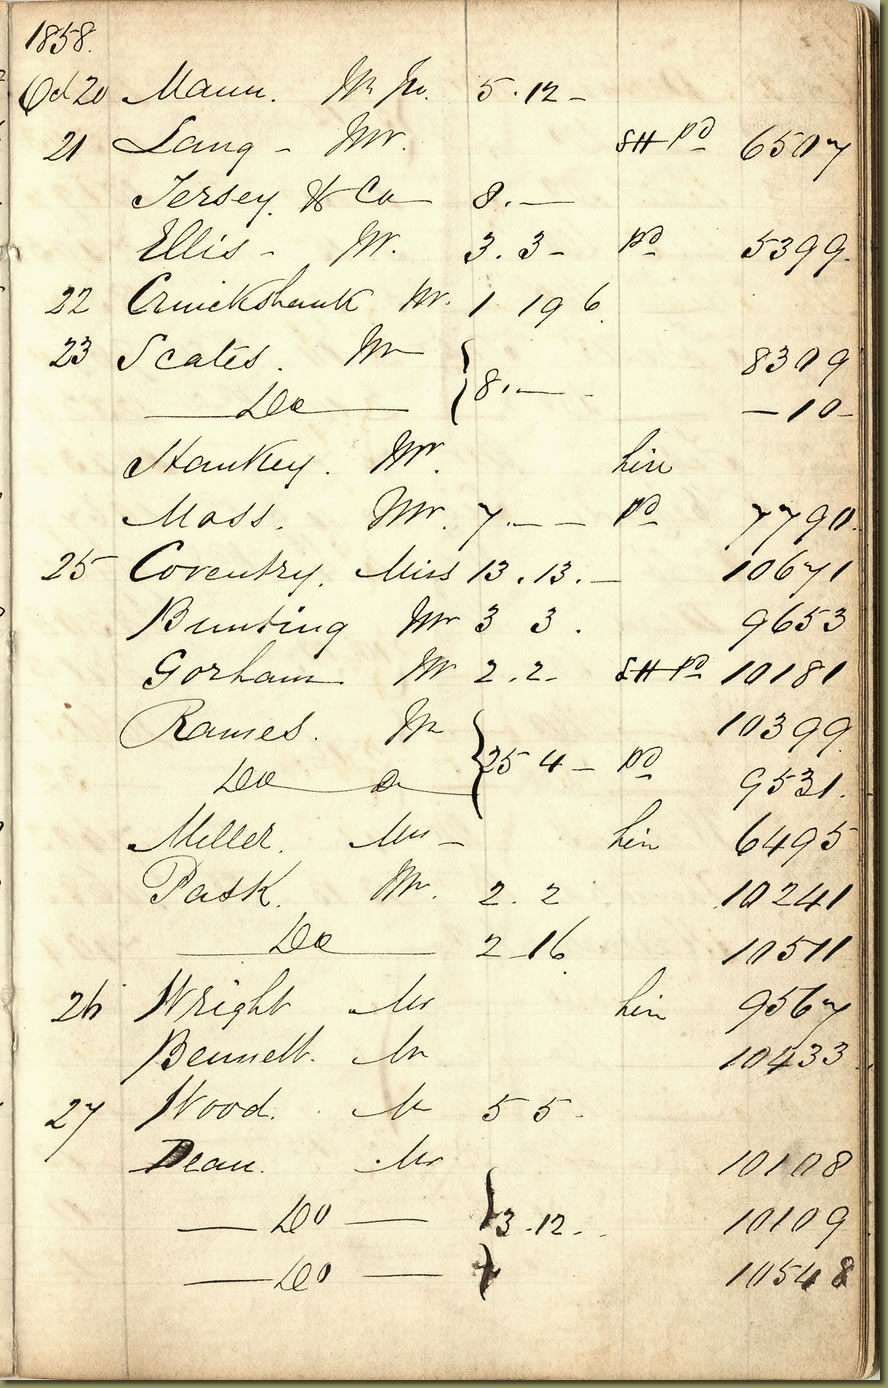 1858.
Oct 20 Mann. Mr Jn. 5.12 -
21 Lang - Mr. SH Pd 6507
Jersey & Co 8. —
Ellis - Mr. 3.3 - Pd 5399.
22 Cruickshank Mr. 1 19 6
23 Scates. Mr 8309
Do } 8. — - — 10 -
Stankey. Mr. hin
Moss. Mr. 7. — - Pd 7790.
25 Coventry. Miss 13.13. - 10671
Bunting Mr 3 3. 9653
Gorham Mr 2.2 - SH Pd 10181
Rames. Mr 10399
Do Do } 25 4 - Pd 9531.
Miller. Mrs - hin 6495
Pask. Mr. 2.2 10241
Do 2 16 10511
26 Wright Mr hin 9567
Bennett. Mr 10433
27 Wood. Mr 5 5 -
Dean. Mr 10108
— Do — } 3.12. - 10109
— Do — } 10548